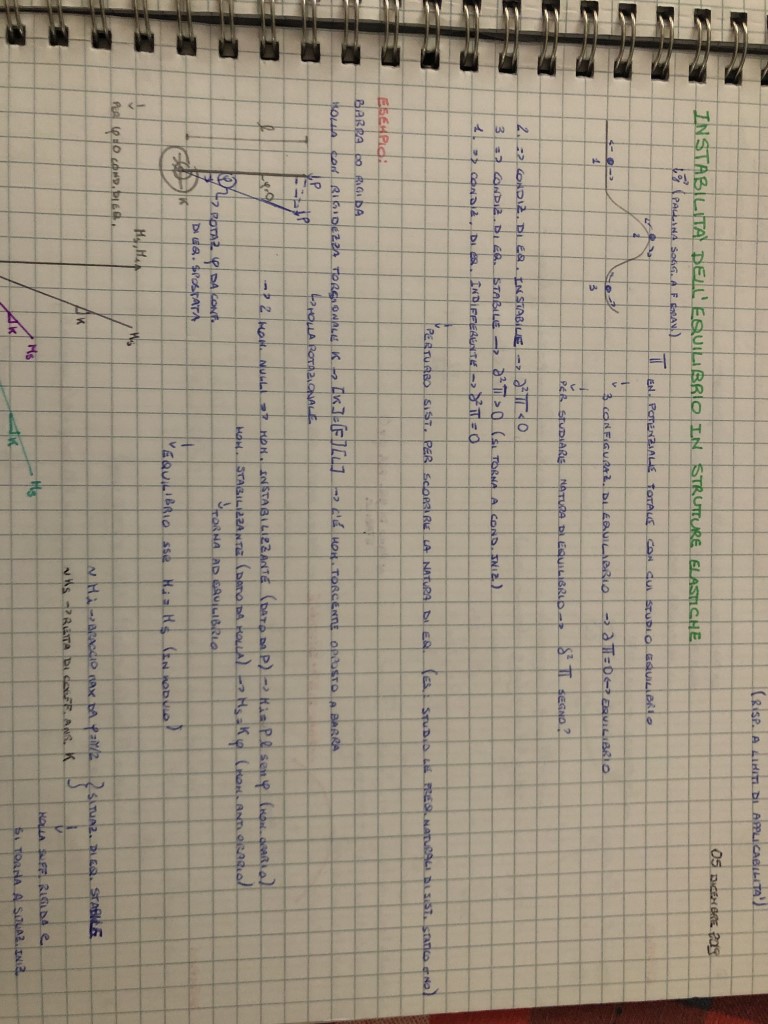 (RISP. A LIMITI DI APPLICABILITA')
05 DICEMBRE 2019
INSTABILITA' DELL'EQUILIBRIO IN STRUTTURE ELASTICHE
(PALLINA SOGG. A F GRAV.)
Π EN. POTENZIALE TOTALE CON CUI STUDIO EQUILIBRIO
1 2 3
3 CONFIGURAZ. DI EQUILIBRIO → ∂Π=0 ↔ EQUILIBRIO
PER STUDIARE NATURA DI EQUILIBRIO → ∂²Π SEGNO?
2. => CONDIZ. DI EQ. INSTABILE → ∂²Π<0
3 => CONDIZ. DI EQ. STABILE → ∂²Π>0 (SI TORNA A COND. INIZ)
1. => CONDIZ. DI EQ. INDIFFERENTE → ∂²Π=0
PERTURBO SIST. PER SCOPRIRE LA NATURA DI EQ. (ES. STUDIO LE FREQ. NATURALI DI SIST. STATICO O NO)
ESEMPIO:
BARRA ∞ RIGIDA
MOLLA CON RIGIDEZZA TORSIONALE K → [K]=[F][L] → C'È MOM. TORCENTE OPPOSTO A BARRA
↳ MOLLA ROTAZIONALE
P P
l
φ
K
→ ROTAZ φ DA CONF.
DI EQ. SPOSTATA
→ 2 MOM. NULLI => MOM. INSTABILIZZANTE (DATO DA P) → Mi = P l sen φ (MOM. ORARIO)
MOM. STABILIZZANTE (DATO DA MOLLA) → Ms = Kφ (MOM. ANTIORARIO)
TORNA AD EQUILIBRIO
EQUILIBRIO SSE Mi = Ms (IN MODULO)
Ms, Mi
Ms
K
Ms
K
Ms
K
PER φ=0 COND. DI EQ.
~ Mi → BRACCIO MAX DA φ=π/2
~ Ms → RETTA DI COEFF. ANG. K
} SITUAZ. DI EQ. STABILE
MOLLA SUFF. RIGIDA E
SI TORNA A SITUAZ. INIZ